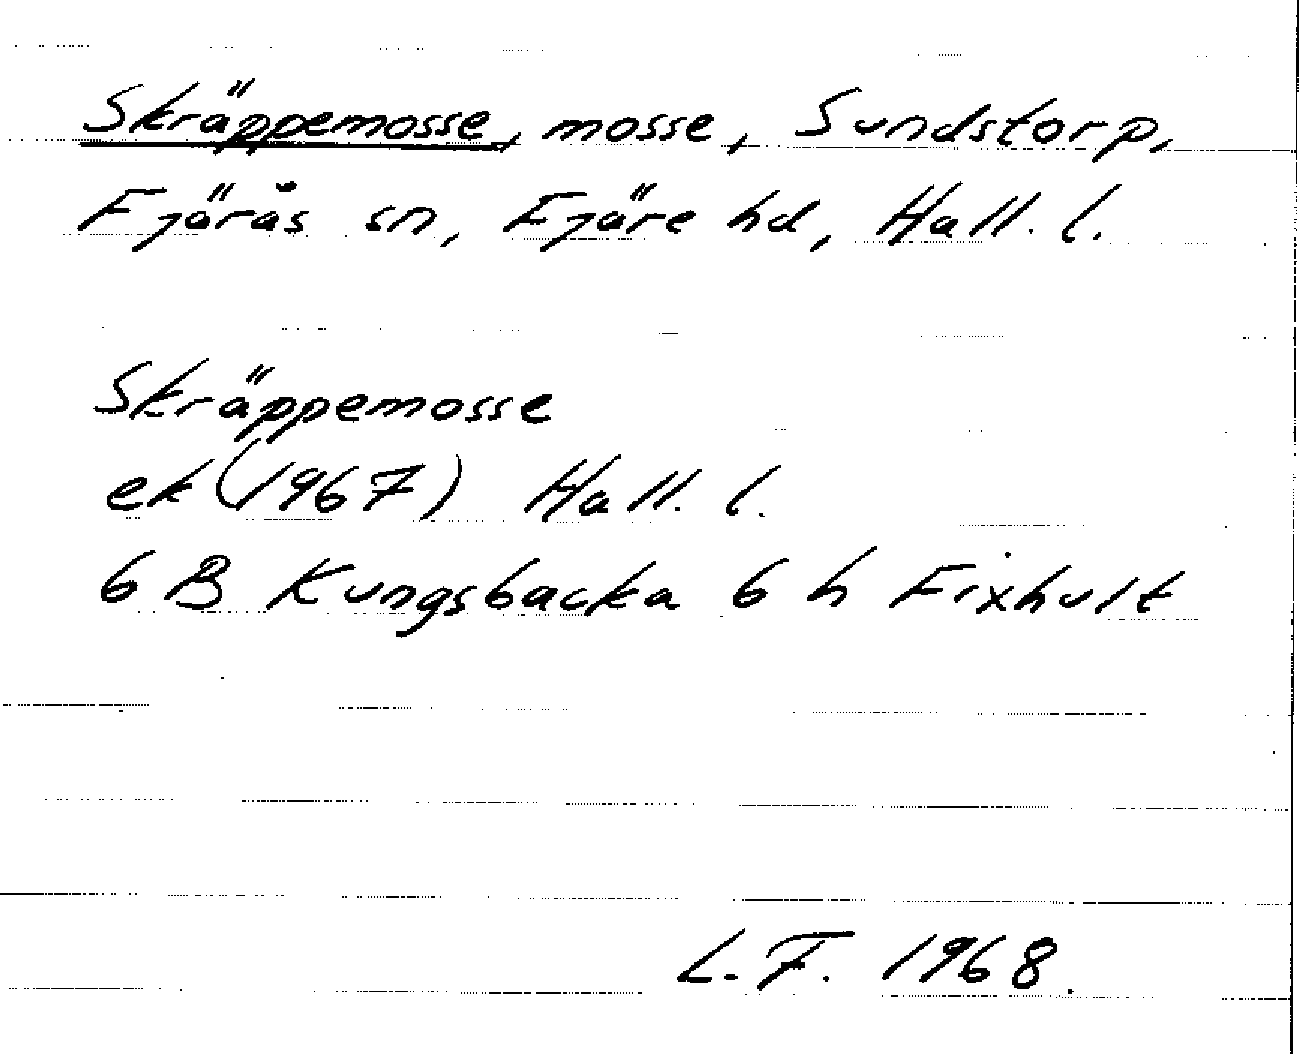 Skräppemosse, mosse, Sundstorp,
Fjärås sn, Fjäre hd, Hall. l.
Skräppemosse
ek (1967) Hall. l.
6 B Kungsbacka 6 h Fixhult
L. F. 1968.